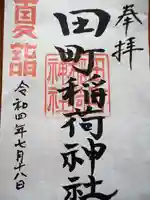 奉拝
田町稲荷神社
夏詣
令和四年七月十八日